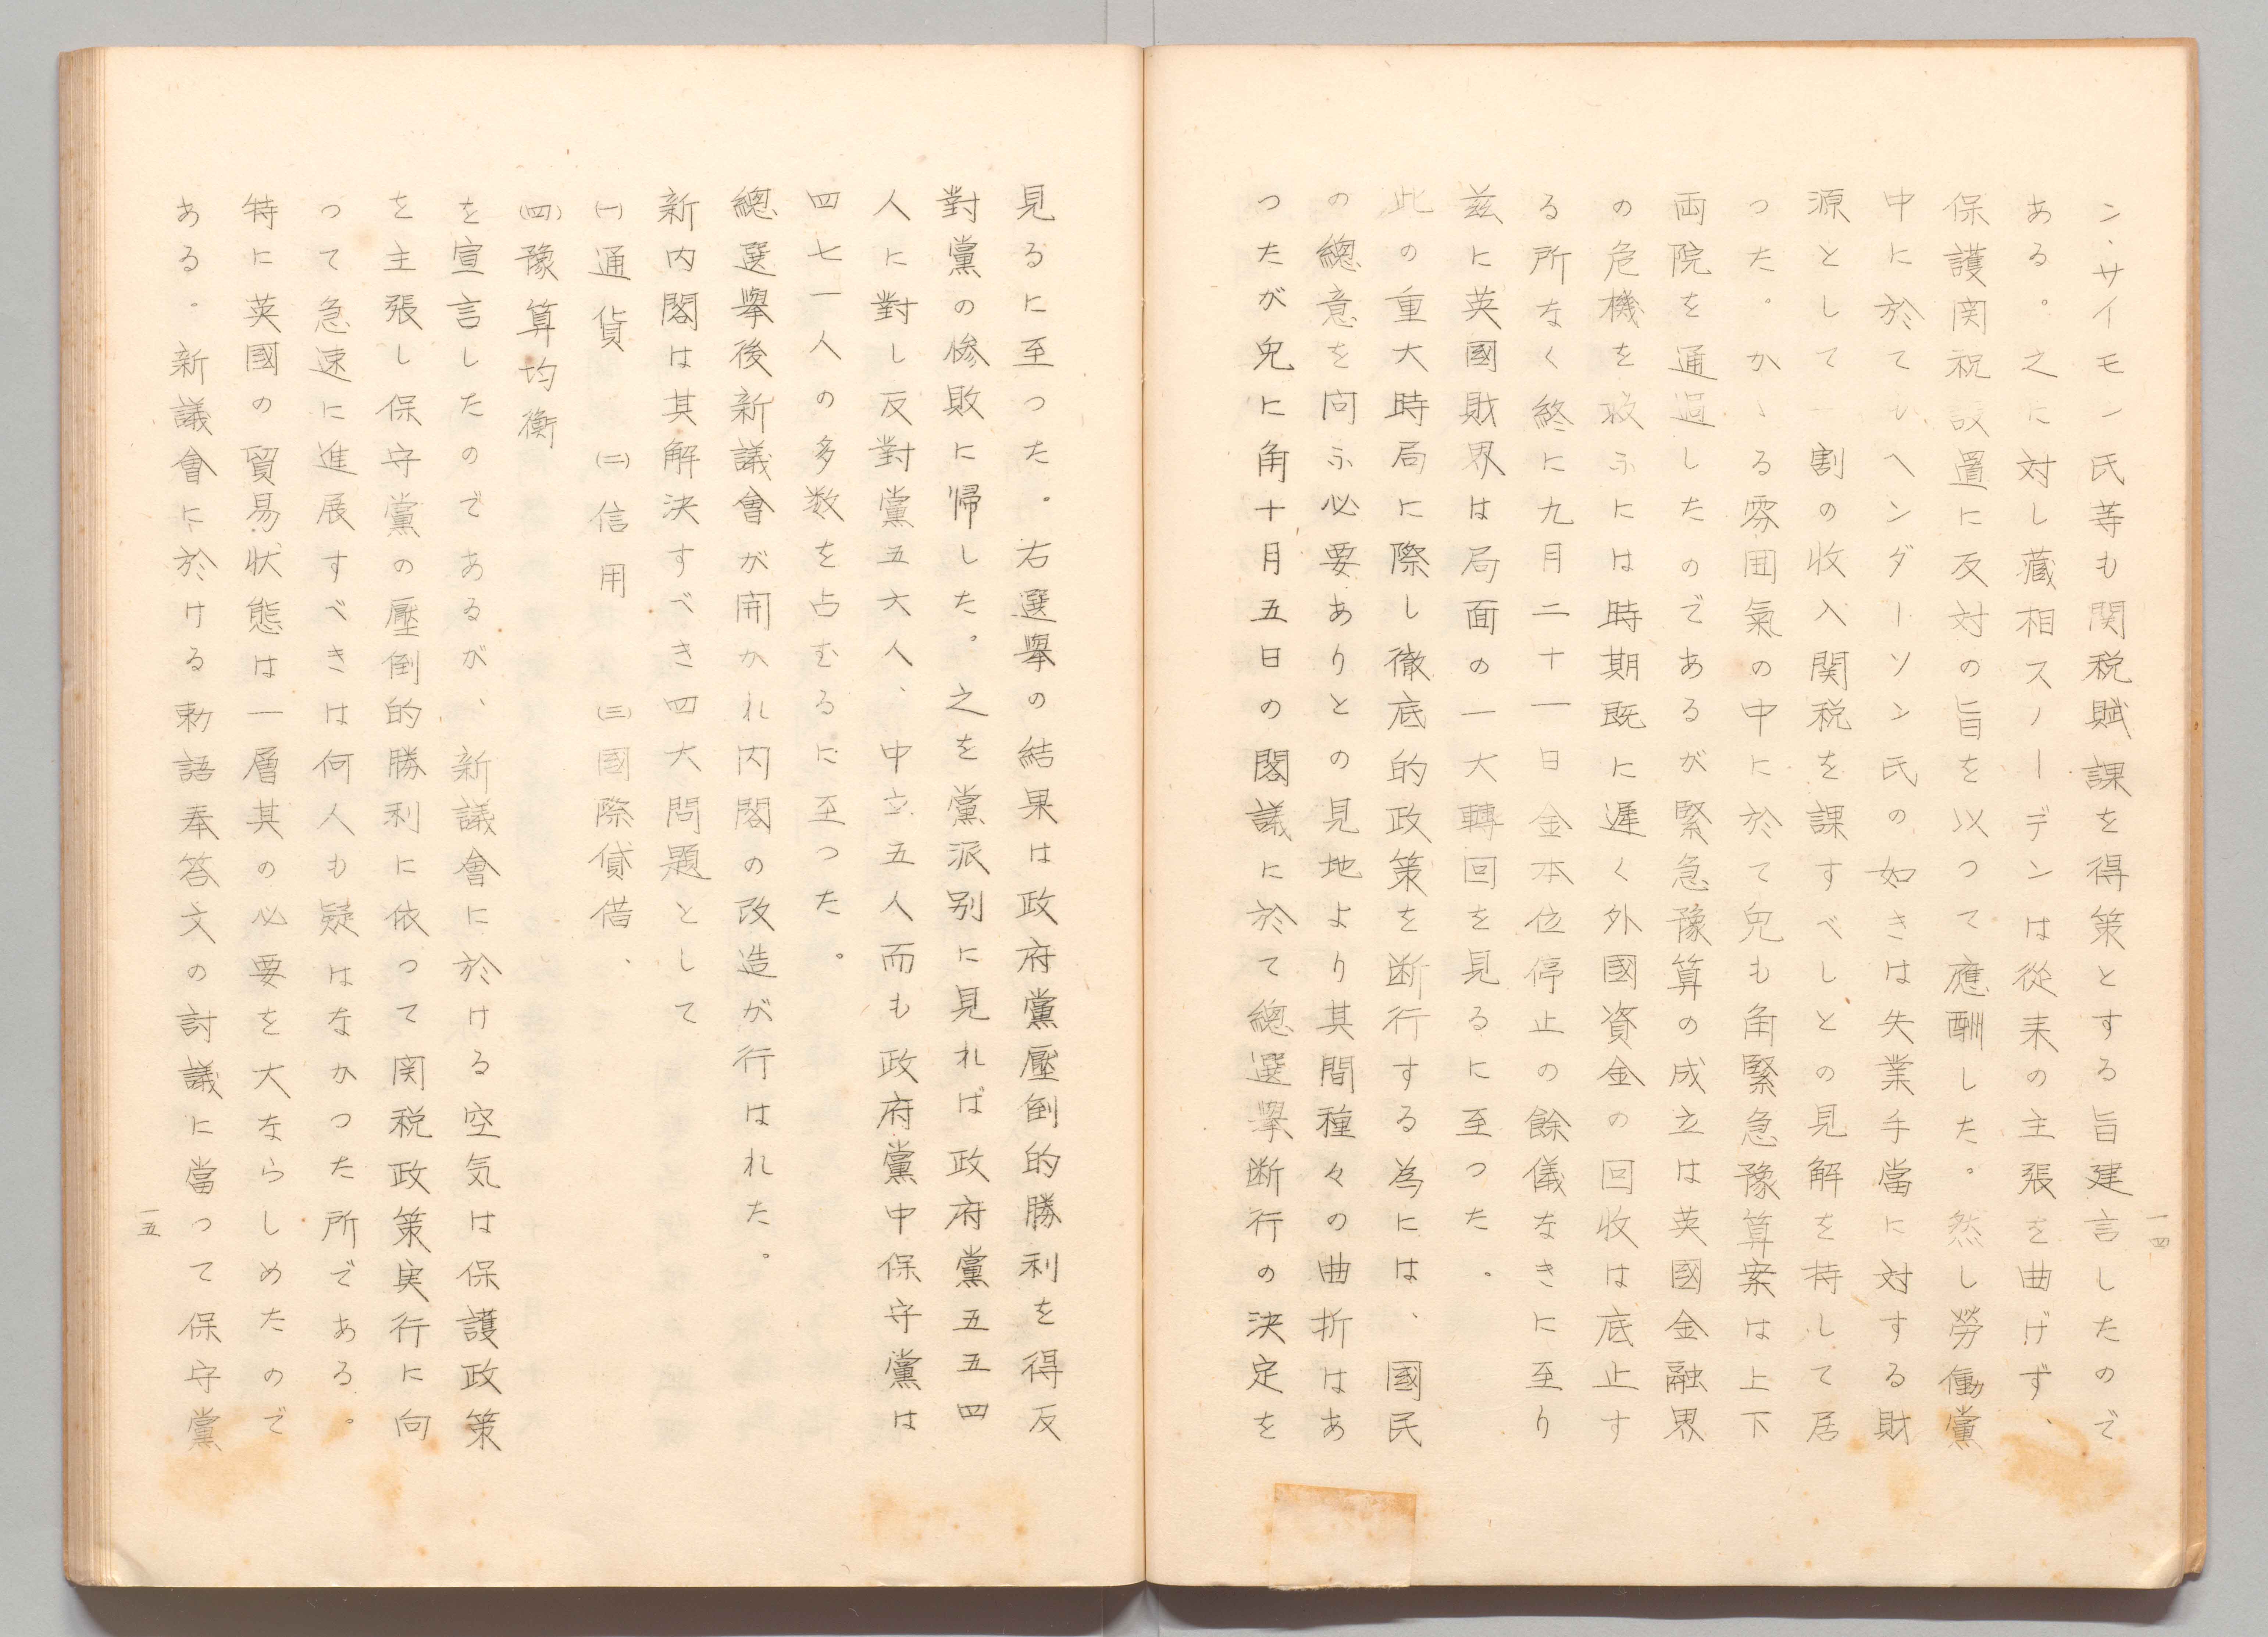 ン、サイモン氏等も関税賦課を得策とする旨建言したので
ある。之に対し蔵相スノーデンは從来の主張を曲げず、
保護関税設置に反対の旨を以つて應酬した。然し勞働黨
中に於てもヘンダーソン氏の如きは失業手當に対する財
源として一割の收入関税を課すべしとの見解を持して居
つた。かゝる雰囲氣の中に於て兎も角緊急豫算案は上下
両院を通過したのであるが緊急豫算の成立は英國金融界
の危機を救ふには時期既に遲く外國資金の回收は底止す
る所なく終に九月二十一日金本位停止の餘儀なきに至り
茲に英國財界は局面の一大轉回を見るに至つた。
此の重大時局に際し徹底的政策を断行する為には、國民
の總意を問ふ必要ありとの見地より其間種々の曲折はあ
つたが兎に角十月五日の閣議に於て總選擧断行の決定を
一四
見るに至つた。右選擧の結果は政府黨壓倒的勝利を得反
對黨の惨敗に帰した。之を黨派別に見れば政府黨五五四
人に對し反對黨五六人、中立五人而も政府黨中保守黨は
四七一人の多数を占むるに至つた。
總選擧後新議會が開かれ内閣の改造が行はれた。
新内閣は其解決すべき四大問題として
㈠通貨　㈡信用　㈢國際貸借、
㈣豫算均衡
を宣言したのであるが、新議會に於ける空気は保護政策
を主張し保守黨の壓倒的勝利に依つて関税政策実行に向
つて急速に進展すべきは何人も疑はなかつた所である。
特に英國の貿易状態は一層其の必要を大ならしめたので
ある。新議會に於ける勅語奉答文の討議に當つて保守黨
一五